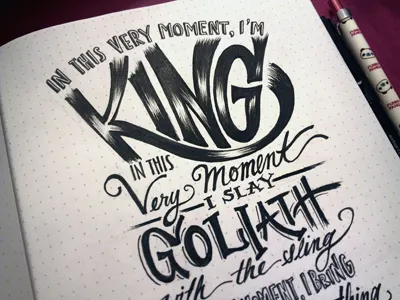 IN THIS VERY MOMENT, I'M
KING
IN THIS
Very Moment
I SLAY
GOLIATH
with the sling
MOMENT, I BRING